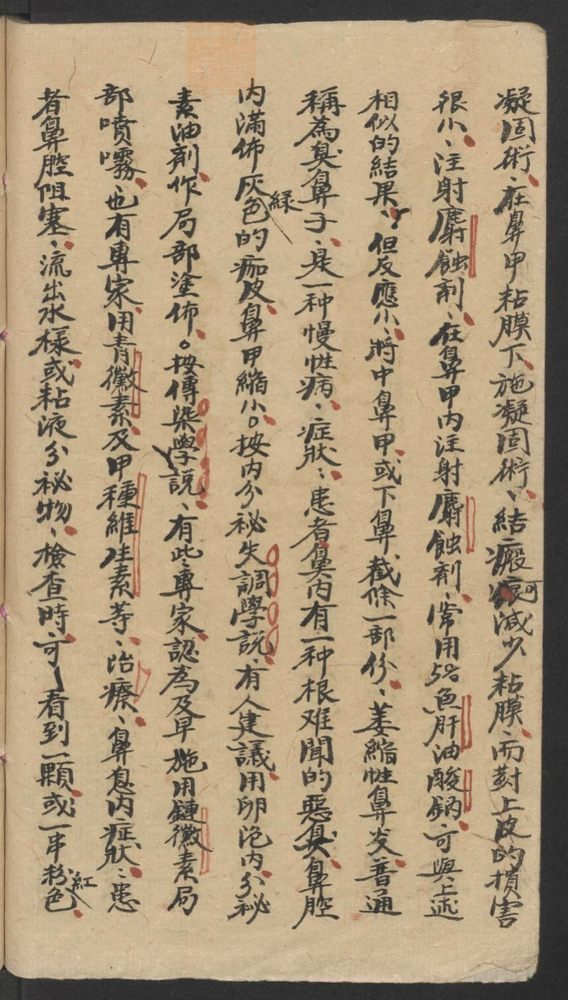 凝固術、在鼻甲粘膜下、施凝固術、結瘢痕可減少粘膜、而對上皮的損害
很小、注射腐蝕剤、在鼻甲内注射腐蝕剤、常用5%魚肝油酸鈉、可與上述
相似的結果、但反應小、將中鼻甲、或下鼻截除一部份、萎縮性鼻炎、普通
稱為臭鼻子、是一种慢性病、症狀、患者鼻内有一种很难聞的惡臭、鼻腔
内滿佈灰綠色的痂皮、鼻甲縮小。按内分祕失調學説、有人建議、用卵泡内分祕
素油剤、作局部塗佈。按傳染學説、有此專家、認為及早施用鏈黴素局
部噴霧、也有專家、用青黴素及甲種維生素等、治療、鼻息肉症狀、患
者鼻腔阻塞、流出水樣或粘液分祕物、檢查時、可看到一顆、或一串粉紅色、